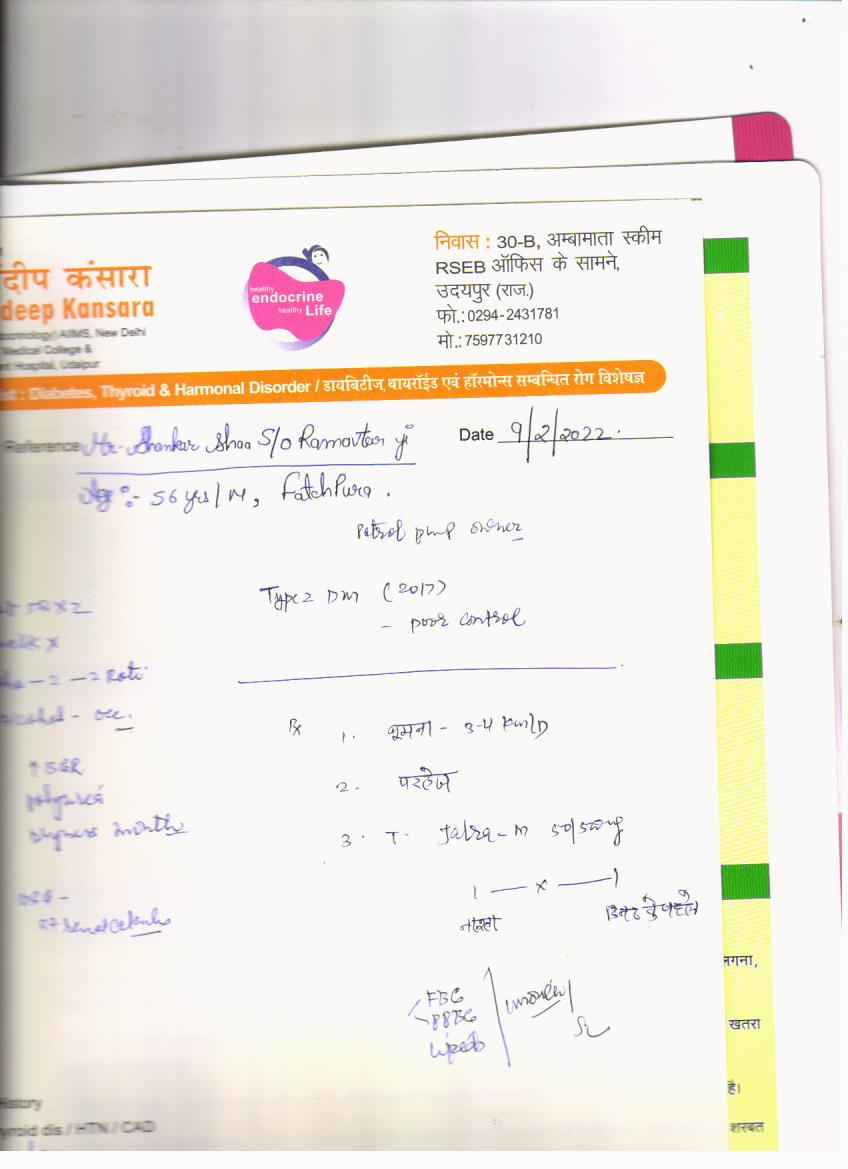 दीप कंसारा
deep Kansara
AIIMS, New Delhi
Medical College &
Hospital, Udaipur
healthy
endocrine
healthy Life
निवास : 30-B, अम्बामाता स्कीम
RSEB ऑफिस के सामने,
उदयपुर (राज.)
फो.: 0294-2431781
मो.: 7597731210
Diabetes, Thyroid & Harmonal Disorder / डायबिटीज, थायरॉईड एवं हॉरमोन्स सम्बन्धित रोग विशेषज्ञ
Reference Mr. Shankar S/o Ramavtar ji
Date 9/2/2022.
Age :- 56 yrs/M, FatehPura.
Patrol pump owner
Type 2 DM (2017)
- poor control
- 2 - 2 Roti
alcohol - occ.
polyurea
renal calculus
Rx 1. घूमना - 3-4 km/D
2. परहेज
3. T. Jalra-M 50/500mg
1 — x — 1
नाश्ता डिनर के पहले
FBG
PPBG
लगना,
खतरा
है।
शरबत
History
dis / HTN / CAD